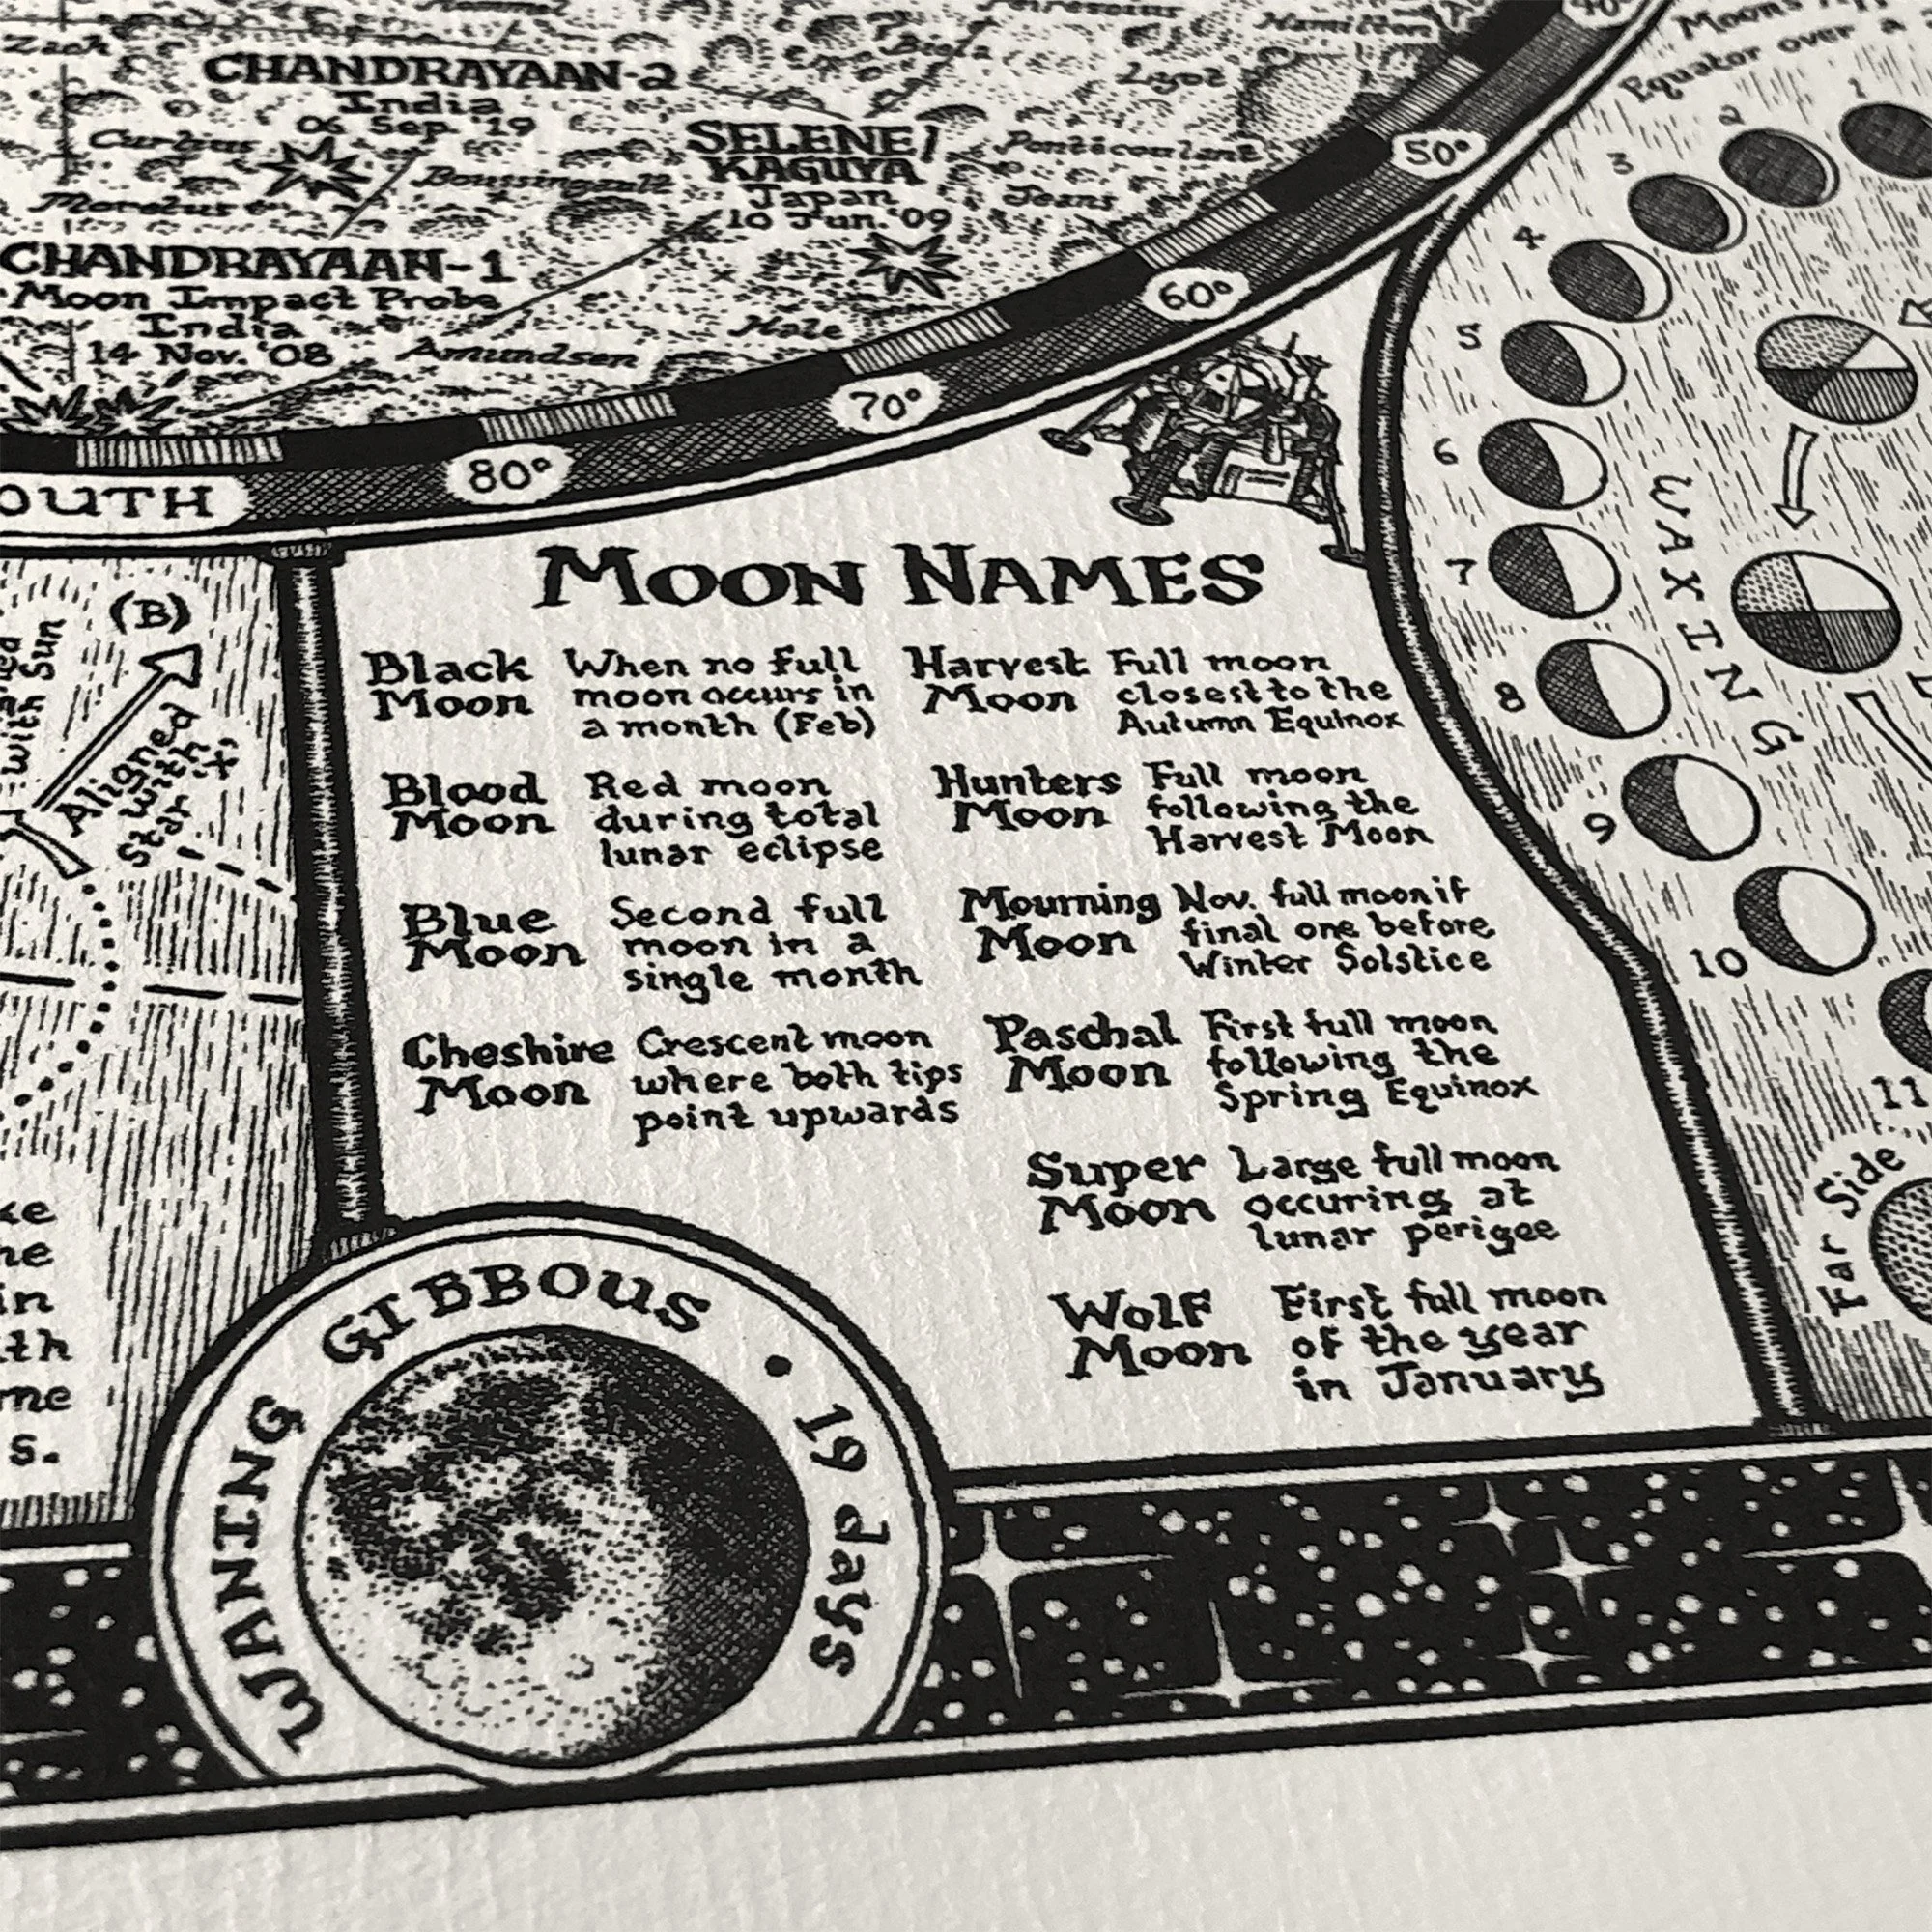 Zach
CHANDRAYAAN-2
India
06 Sep. '19
Curtius
Boussingault
Moretus
CHANDRAYAAN-1
Moon Impact Probe
India
14 Nov. '08
Amundsen
Biela
Hamilton
Lyot
SELENE/
KAGUYA
Japan
10 Jun. '09
Pontécoulant
Jeans
Hale
50°
60°
70°
80°
Equator over a
1
2
3
4
5
6
7
8
9
10
11
WAXING
Far Side
(B)
with Sun
Aligned
with
Star 'X'
MOON NAMES
Black Moon When no full
moon occurs in
a month (Feb)
Blood Moon Red moon
during total
lunar eclipse
Blue Moon Second full
moon in a
single month
Cheshire Moon Crescent moon
where both tips
point upwards
Harvest Moon Full moon
closest to the
Autumn Equinox
Hunters Moon Full moon
following the
Harvest Moon
Mourning Moon Nov. full moon if
final one before
Winter Solstice
Paschal Moon First full moon
following the
Spring Equinox
Super Moon Large full moon
occuring at
lunar perigee
Wolf Moon First full moon
of the year
in January
WANING GIBBOUS • 19 days